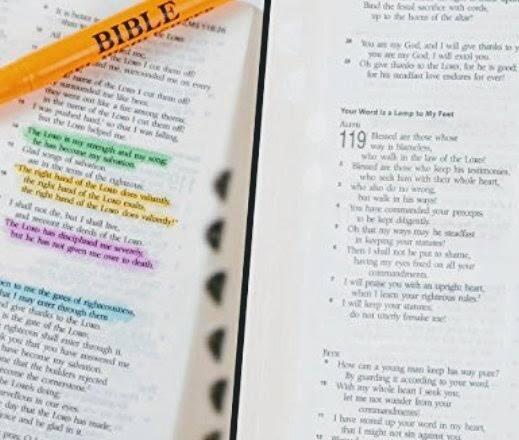 BIBLE
It is better to
All
me,
the LORD I cut them off!
me, surrounded me on every
name of the LORD I cut them off!
surrounded me like bees;
they went out like a fire among thorns;
in the name of the LORD I cut them off!
I was pushed hard, so that I was falling,
but the LORD helped me.
The LORD is my strength and my song;
he has become my salvation.
Glad songs of salvation
are in the tents of the righteous:
"The right hand of the LORD does valiantly,
the right hand of the LORD exalts,
the right hand of the LORD does valiantly!"
I shall not die, but I shall live,
and recount the deeds of the LORD.
The LORD has disciplined me severely,
but he has not given me over to death.
to me the gates of righteousness,
that I may enter through them
and give thanks to the LORD.
is the gate of the LORD;
righteous shall enter through it.
you that you have answered me
have become my salvation.
that the builders rejected
become the cornerstone.
the LORD's doing;
marvelous in our eyes.
day that the LORD has made;
and be glad in it.
Bind the festal sacrifice with cords,
up to the horns of the altar!
28 You are my God, and I will give thanks to y
you are my God; I will extol you.
29 Oh give thanks to the LORD, for he is good;
for his steadfast love endures for ever!
Your Word is a Lamp to My Feet
ALEPH
119 Blessed are those whose
way is blameless,
who walk in the law of the LORD!
2 Blessed are those who keep his testimonies,
who seek him with their whole heart,
3 who also do no wrong,
but walk in his ways!
4 You have commanded your precepts
to be kept diligently.
5 Oh that my ways may be steadfast
in keeping your statutes!
6 Then I shall not be put to shame,
having my eyes fixed on all your
commandments.
7 I will praise you with an upright heart,
when I learn your righteous rules.
8 I will keep your statutes;
do not utterly forsake me!
BETH
9 How can a young man keep his way pure?
By guarding it according to your word.
10 With my whole heart I seek you;
let me not wander from your
commandments!
11 I have stored up your word in my heart,
that I might not sin against you.